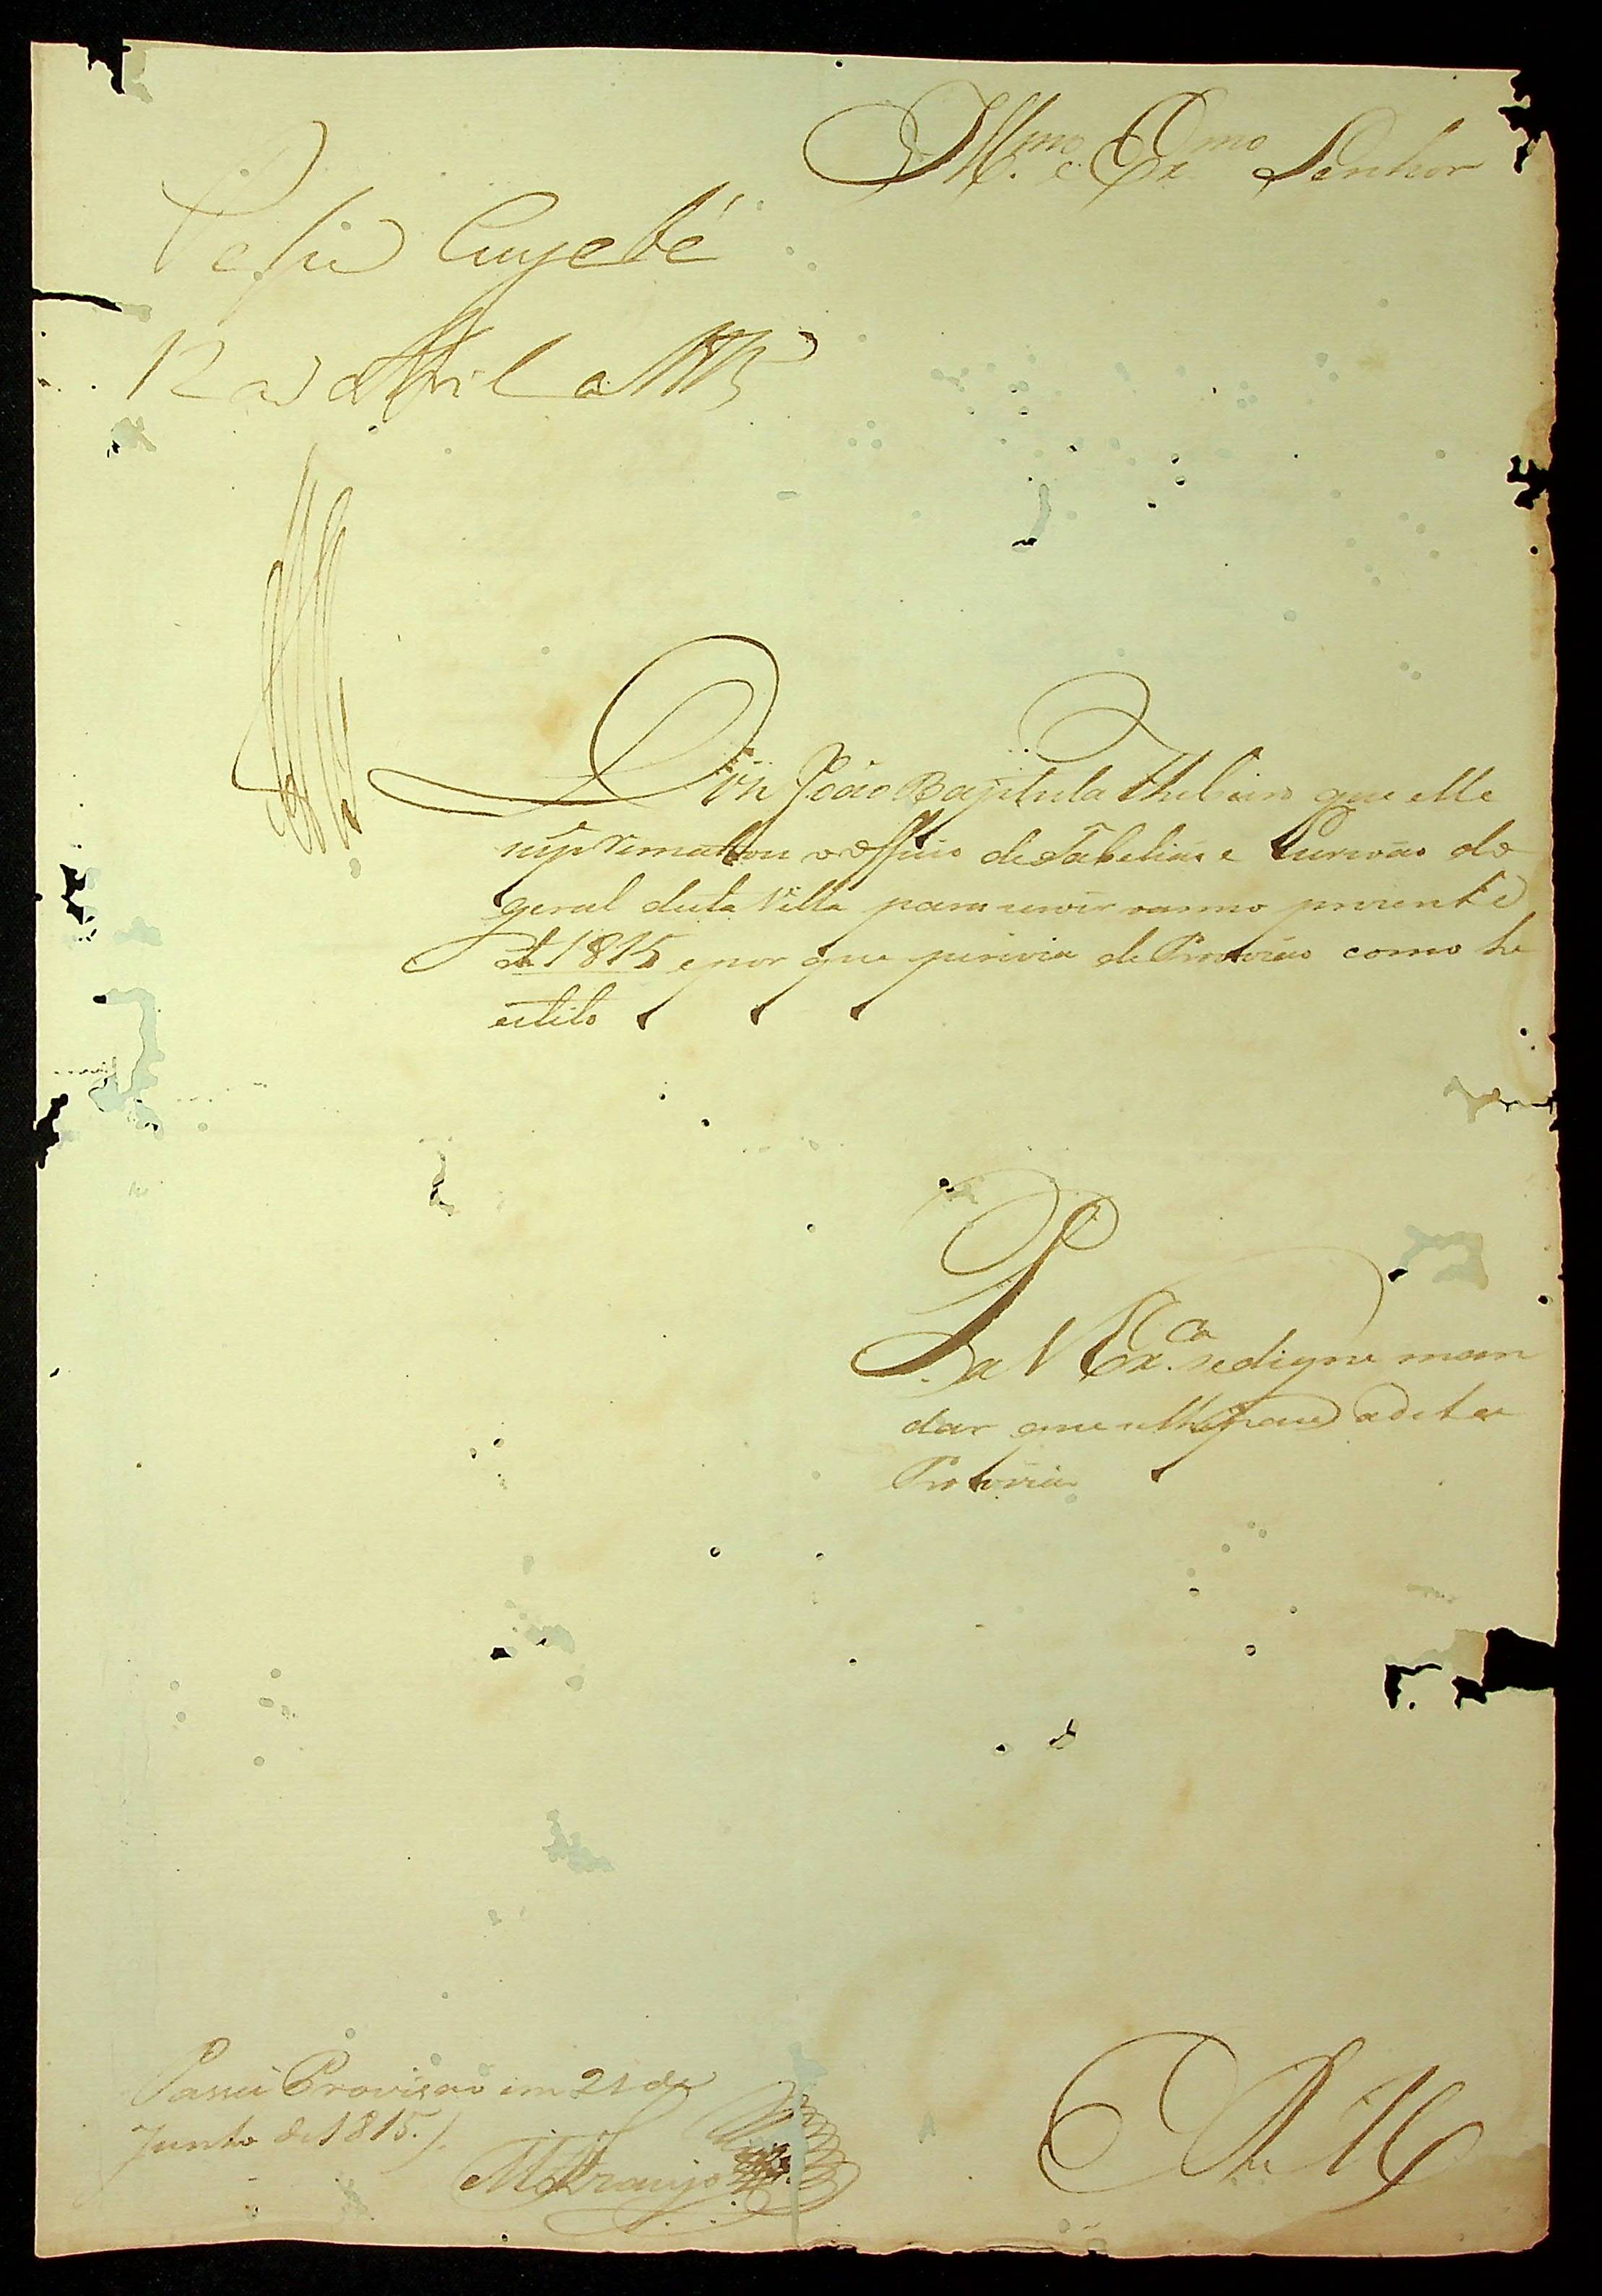 Ill.mo e Ex.mo Senhor
Passe Cuyabá
12 de Abril de 1815
Diz João Baptista que elle
rematou o officio de Tabelião e Escrivão do
geral desta Villa para servir no anno prezente
de 1815 e por que preciza de Provizão como he
estilo
Pa V Ex.ca se digne man
dar que se lhe passe a dita
Provizão
E R M
Passei Provizão em 21 de
Junho de 1815.
M Araujo